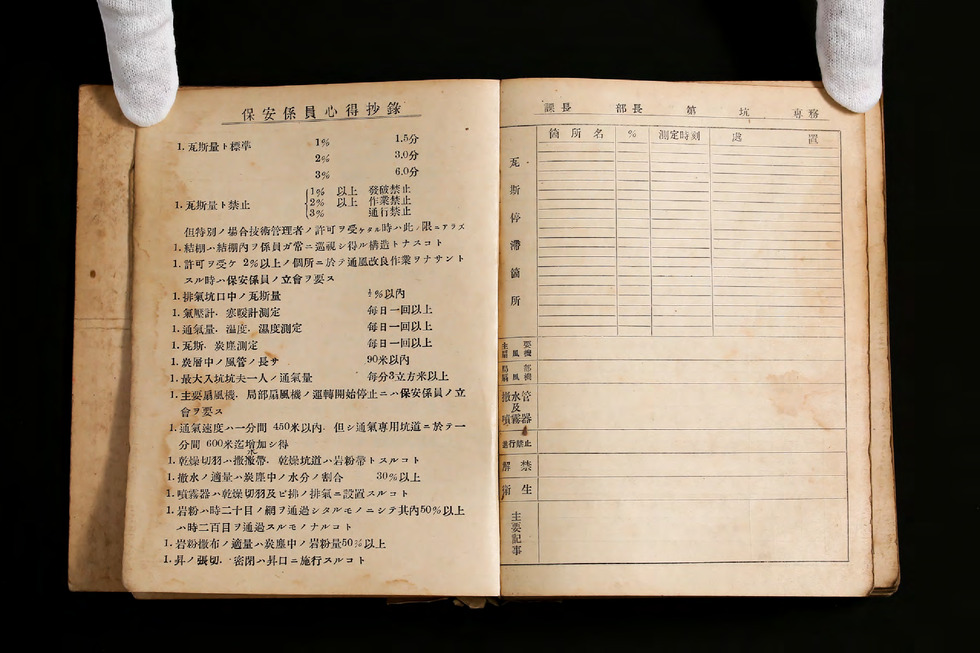 保安係員心得抄錄
1. 瓦斯量ト標準 1% 1.5分
2% 3.0分
3% 6.0分
1. 瓦斯量ト禁止 1% 以上 發破禁止
2% 以上 作業禁止
3% 通行禁止
但特別ノ場合技術管理者ノ許可ヲ受ケタル時ハ此ノ限ニアラズ
1. 結棚ハ結棚內ヲ係員ガ常ニ巡視シ得ル構造トナスコト
1. 許可ヲ受ケ 2%以上ノ個所ニ於テ通風改良作業ヲナサント
スル時ハ保安係員ノ立會ヲ要ス
1. 排氣坑口中ノ瓦斯量 ½%以內
1. 氣壓計．寒暖計測定 每日一回以上
1. 通氣量．温度．濕度測定 每日一回以上
1. 瓦斯．炭塵測定 每日一回以上
1. 炭層中ノ風管ノ長サ 90米以內
1. 最大入坑坑夫一人ノ通氣量 每分3立方米以上
1. 主要扇風機．局部扇風機ノ運轉開始停止ニハ保安係員ノ立
會ヲ要ス
1. 通氣速度ハ一分間 450米以內．但シ通氣専用坑道ニ於テ一
分間 600米迄增加シ得
1. 乾燥切羽ハ撒水帶．乾燥坑道ハ岩粉帶トスルコト
1. 撒水ノ適量ハ炭塵中ノ水分ノ割合 30%以上
1. 噴霧器ハ乾燥切羽及ビ排ノ排氣ニ設置スルコト
1. 岩粉ハ時二十目ノ網ヲ通過シタルモノニシテ其內50%以上
ハ時二百目ヲ通過スルモノナルコト
1. 岩粉撒布ノ適量ハ炭塵中ノ岩粉量50%以上
1. 昇ノ張切．密閉ハ昇口ニ施行スルコト
課長 部長 第 坑 専務
箇所名 % 測定時刻 處置
瓦斯停滯箇所
主要扇風機
局部扇風機
撒水管及噴霧器
通行禁止
解禁
衛生
主要記事